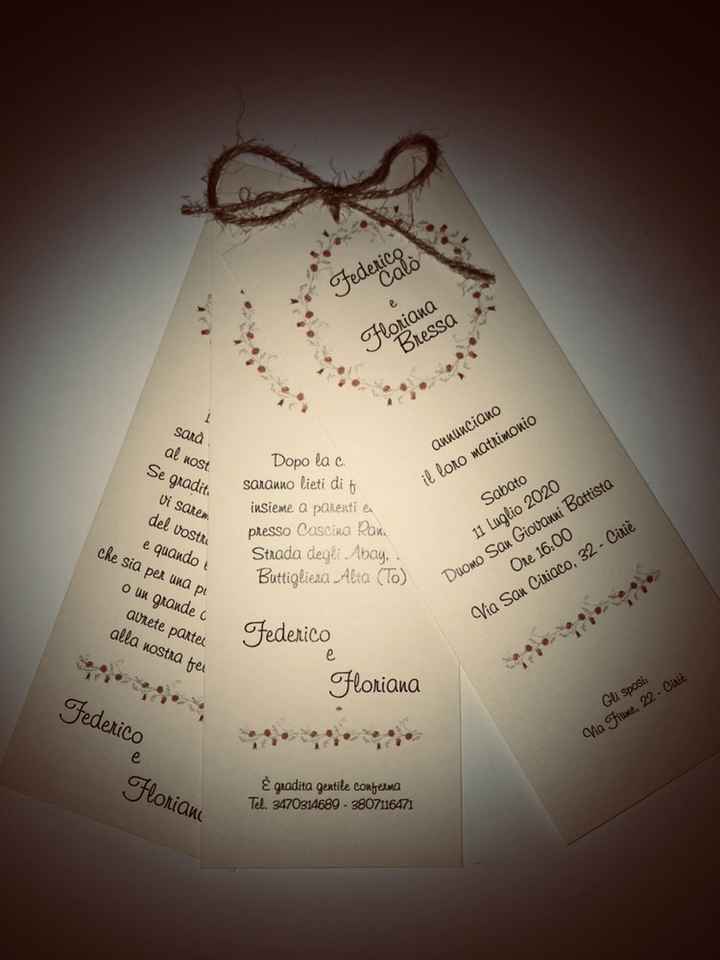 Federico
Calò
e
Floriana
Bressa
annunciano
il loro matrimonio
Sabato
11 Luglio 2020
Duomo San Giovanni Battista
Ore 16:00
Via San Ciriaco, 32 - Ciriè
Gli sposi,
Via Fiume, 22 - Ciriè
Dopo la c
saranno lieti di f
insieme a parenti e
presso Cascina Ran
Strada degli Abay,
Buttigliera Alta (To)
Federico
e
Floriana
È gradita gentile conferma
Tel. 3470314689 - 3807116471
sarà
al nost
Se gradit
vi sarem
del vostr
e quando
che sia per una p
o un grande
avrete partec
alla nostra fe
Federico
e
Florian